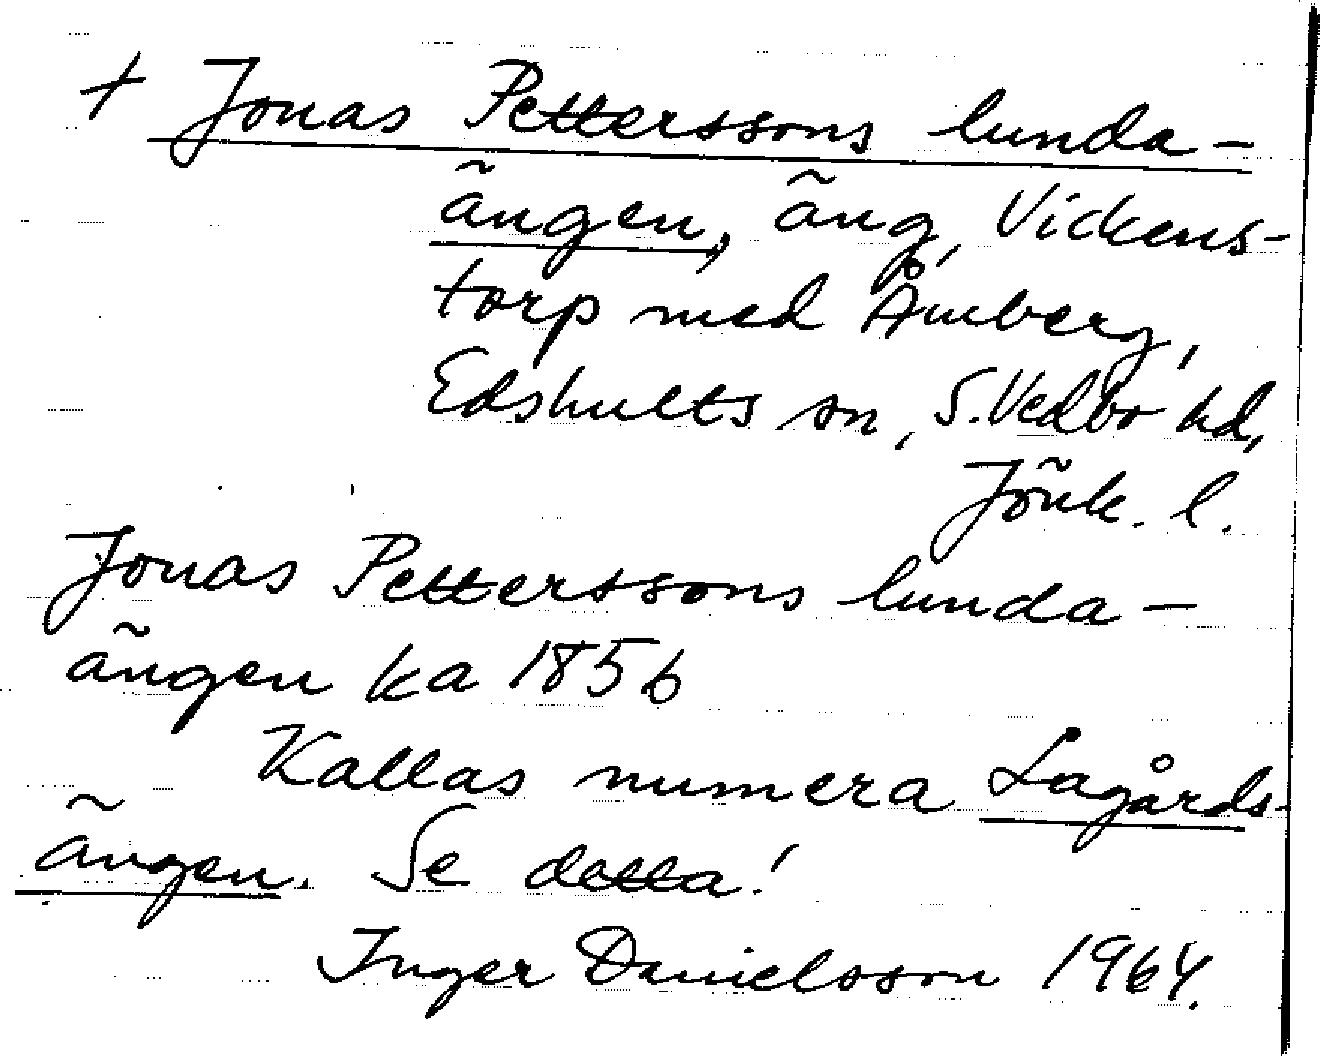 † Jonas Petterssons lunda-
ängen, äng, Vickens-
torp med Åmberg,
Edshults sn, S. Vedbo hd,
Jönk. l.
Jonas Petterssons lunda-
ängen ka 1856
Kallas numera Lagårds-
ängen. Se detta!
Inger Danielsson 1964.